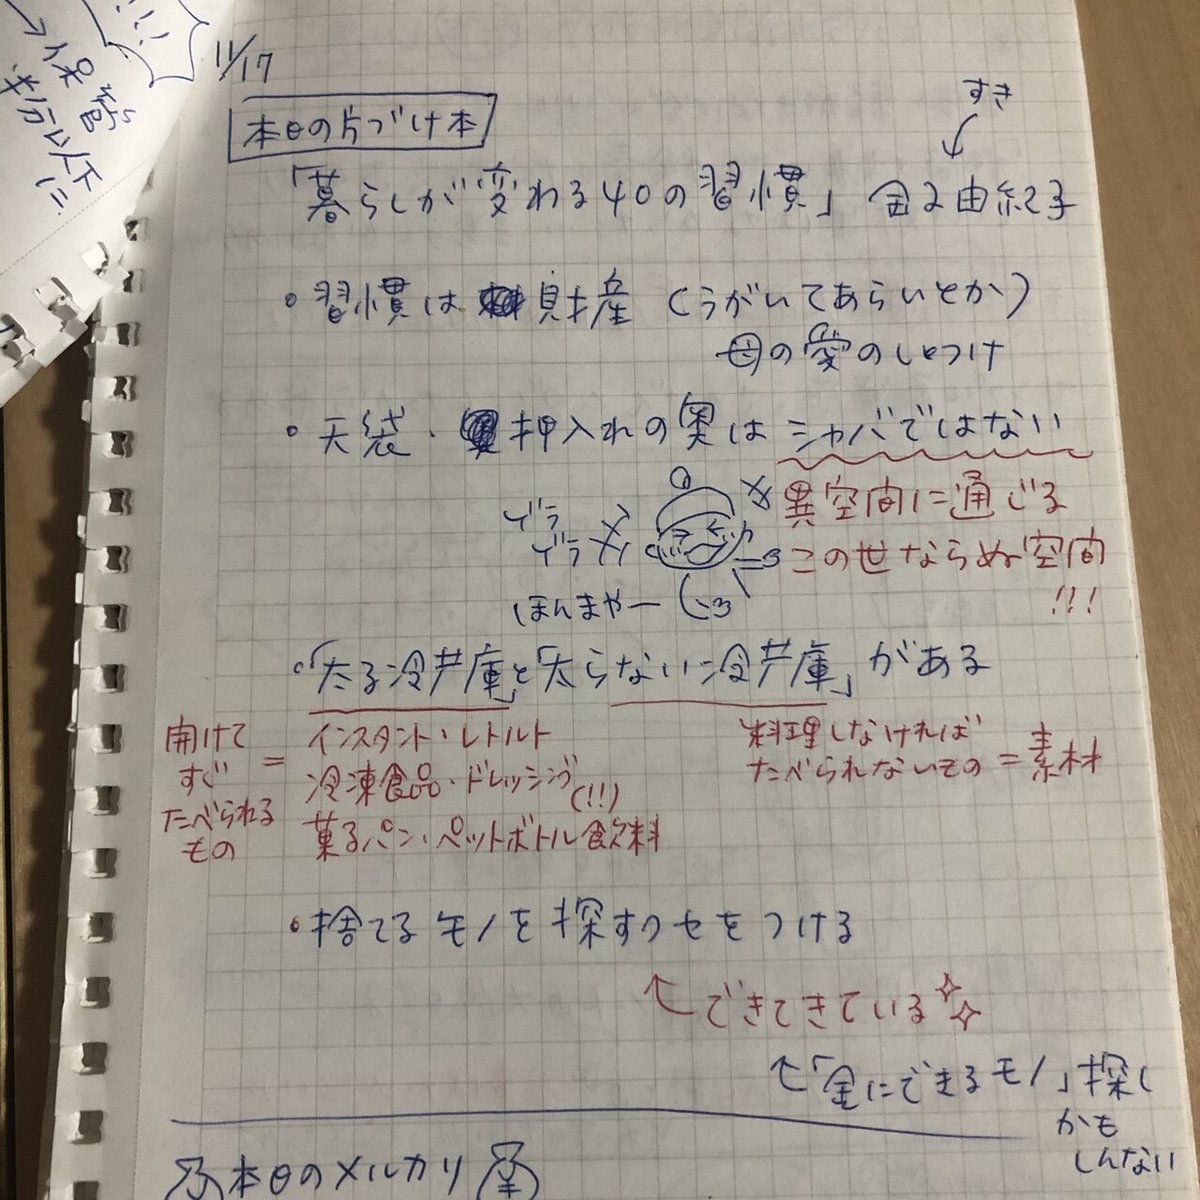 !!!
→保管
半分以下
に
11/17
本日の片づけ本
すき
「暮らしが変わる40の習慣」 金子由紀子
・習慣は財産(うがいてあらいとか)
母の愛のしつけ
・天袋・押入れの奥はシャバではない
異空間に通じる
この世ならぬ空間
!!!
ゲラ
ゲラ
ほんまやー
・「太る冷蔵庫」と「太らない冷蔵庫」がある
開けて
すぐ
たべられる
もの
=
インスタント・レトルト
冷凍食品・ドレッシング
(!!)
菓子パン・ペットボトル飲料
料理しなければ
たべられないもの=素材
・捨てるモノを探すクセをつける
←できてきている
←「金にできるモノ」探し
かも
しんない
本日のメルカリ